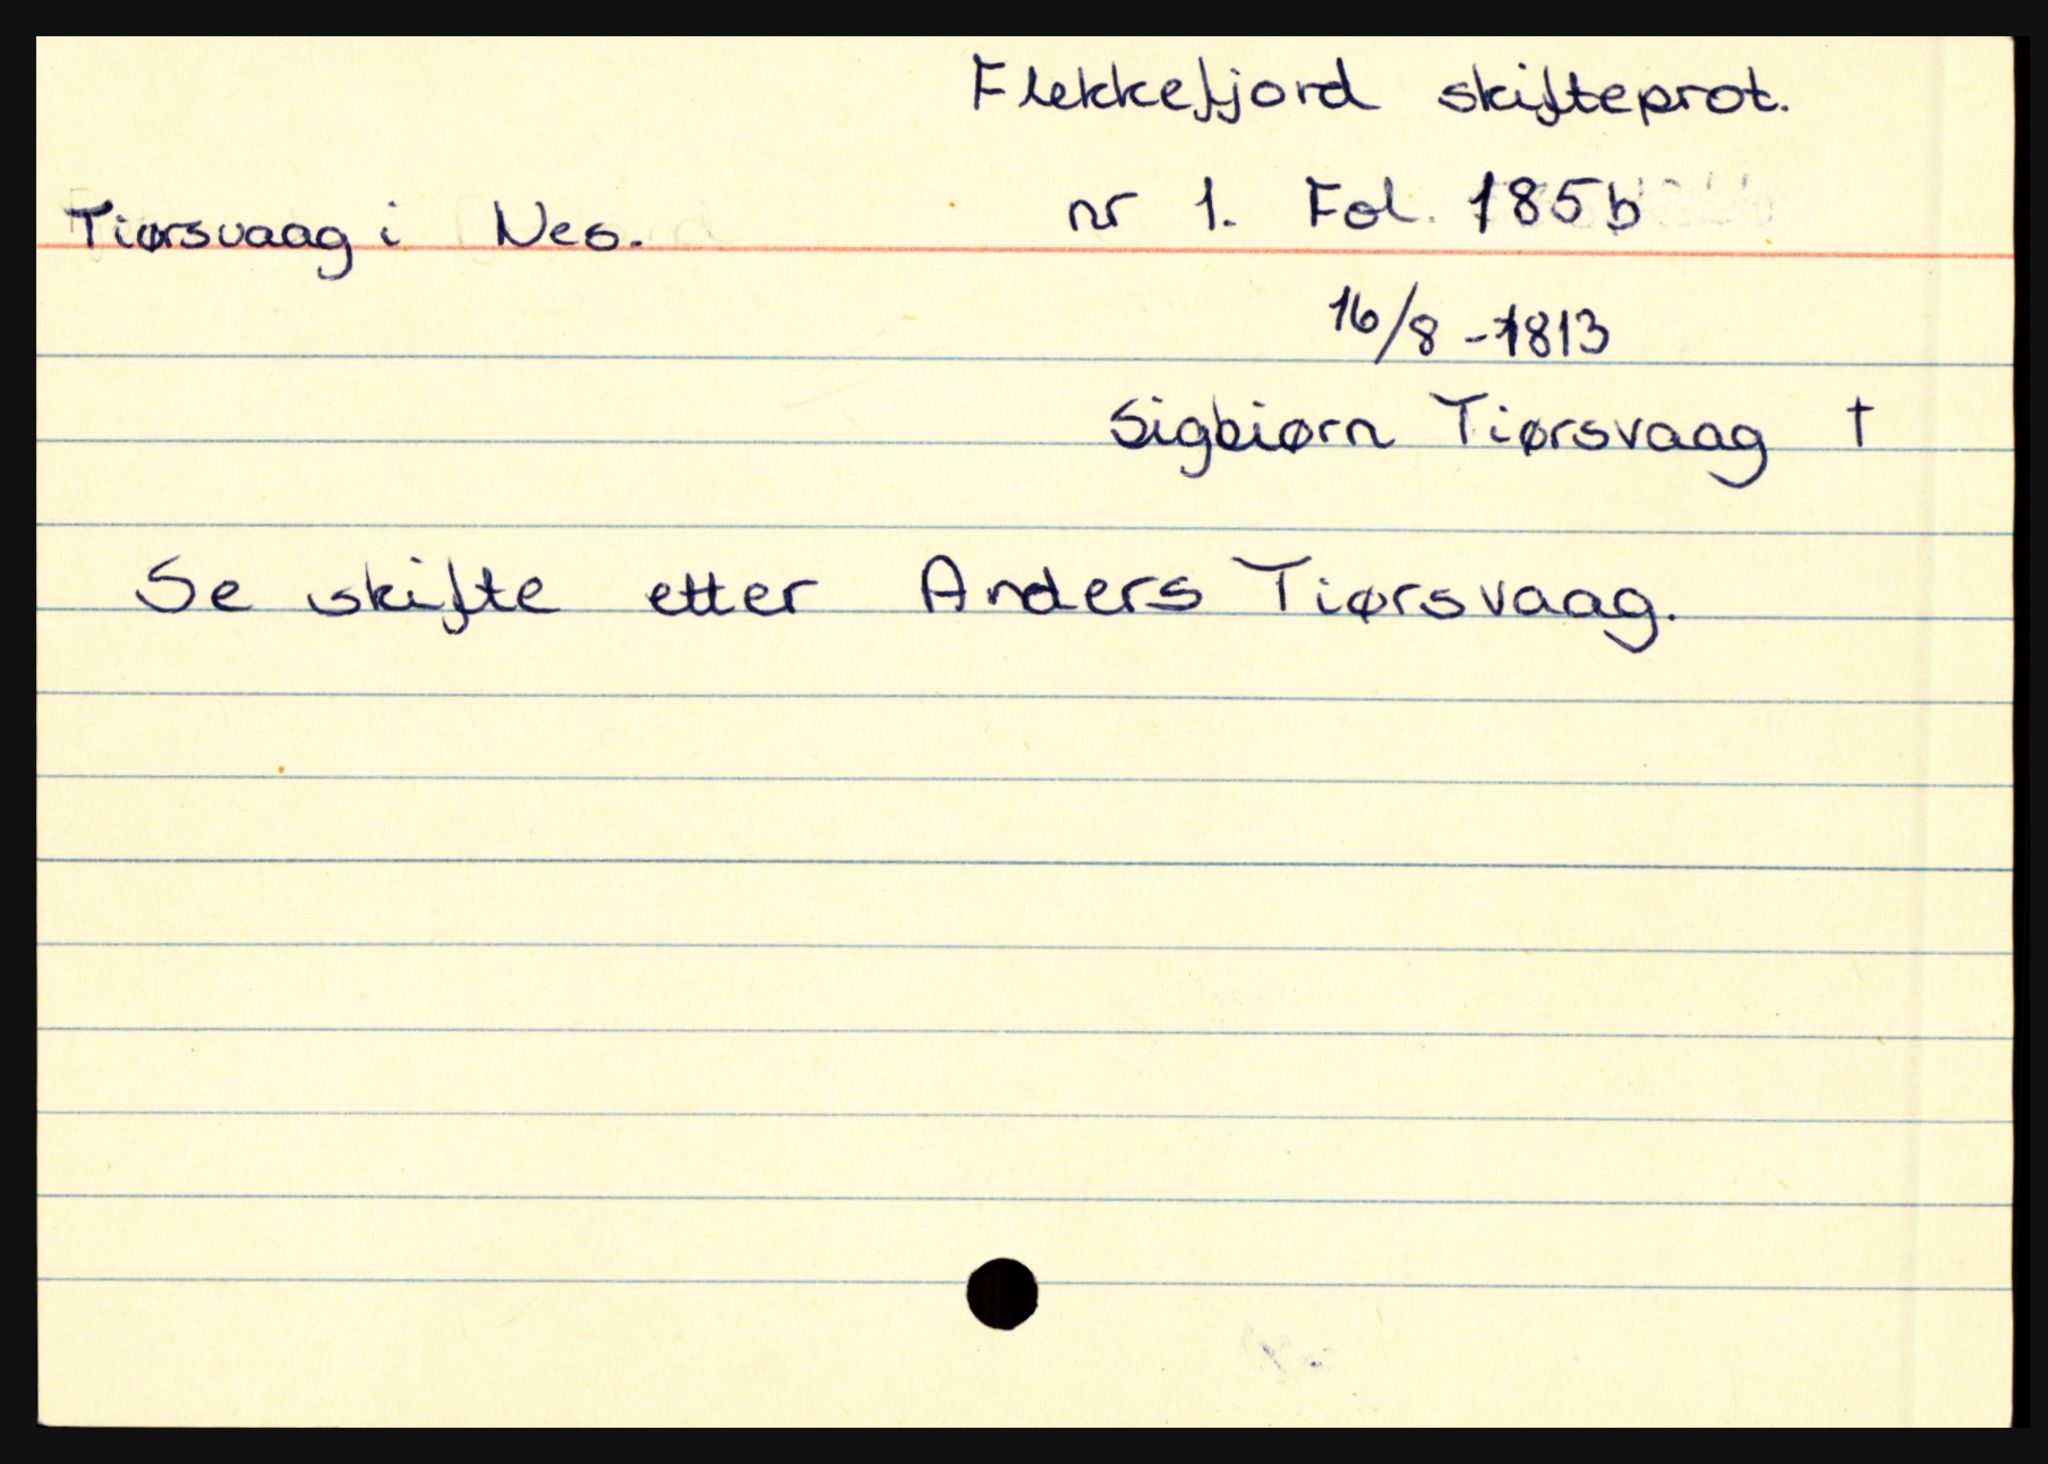 Flekkefjord skifteprot.
Tiørsvaag i Nes.
nr 1. Fol. 185b
16/8 - 1813
Sigbiørn Tiørsvaag †
Se skifte etter Anders Tiørsvaag.